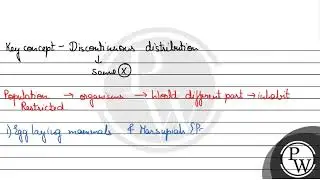 Key concept - Discontinuous distribution
↓
same ⓧ
Population → organisms → World different part → inhabit
Restricted
1) Egg laying mammals & Marsupials SP-
P
W